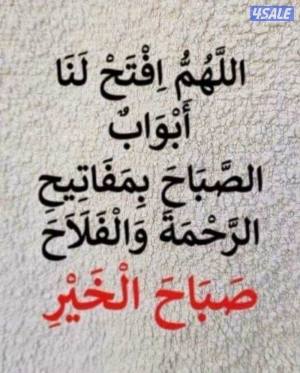 4SALE
اللَّهُمُّ اِفْتَحْ لَنَا
أَبْوَابٌ
الصَّبَاحَ بِمَفَاتِيحِ
الرَّحْمَةَ وَالْفَلَاحَ
صَبَاحَ الْخَيْرِ